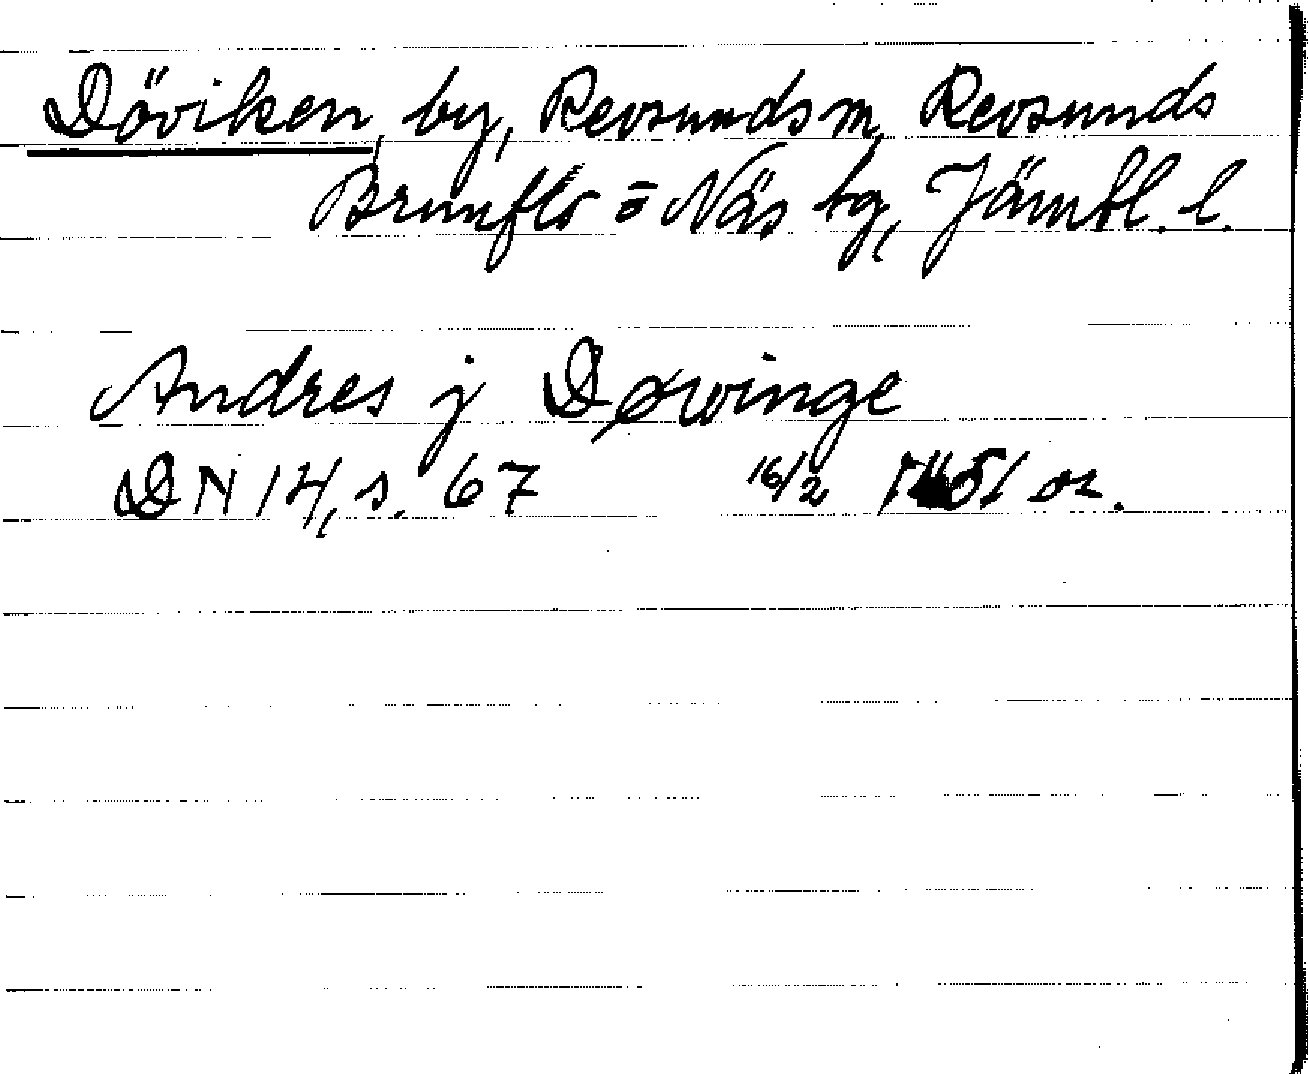 Döviken, by, Revsunds sn, Revsunds
Brunflo o Näs tg, Jämtl. l.
Andres j Døwinge
DN 14, s. 67 16/2 or.